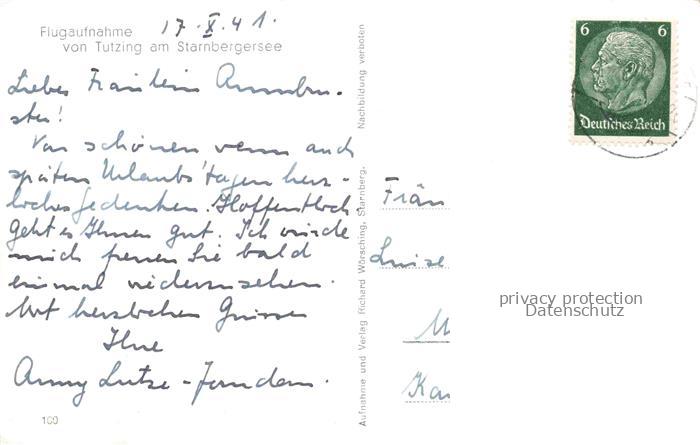 Flugaufnahme 17.X.41.
von Tutzing am Starnbergersee
Liebes Fräulein Armbru-
ster!
Von schönen wenn auch
späten Urlaubstagen herz-
liches Gedenken. Hoffentlich
geht es Ihnen gut. Ich würde
mich freuen Sie bald
einmal wiederzusehen.
Mit herzlichen Grüssen
Ihre
Anny Lutze-
100
Aufnahme und Verlag Richard Wörsching, Starnberg. Nachbildung verboten
6 6
Deutsches Reich
Fräu
Luise
M
Ka
privacy protection
Datenschutz